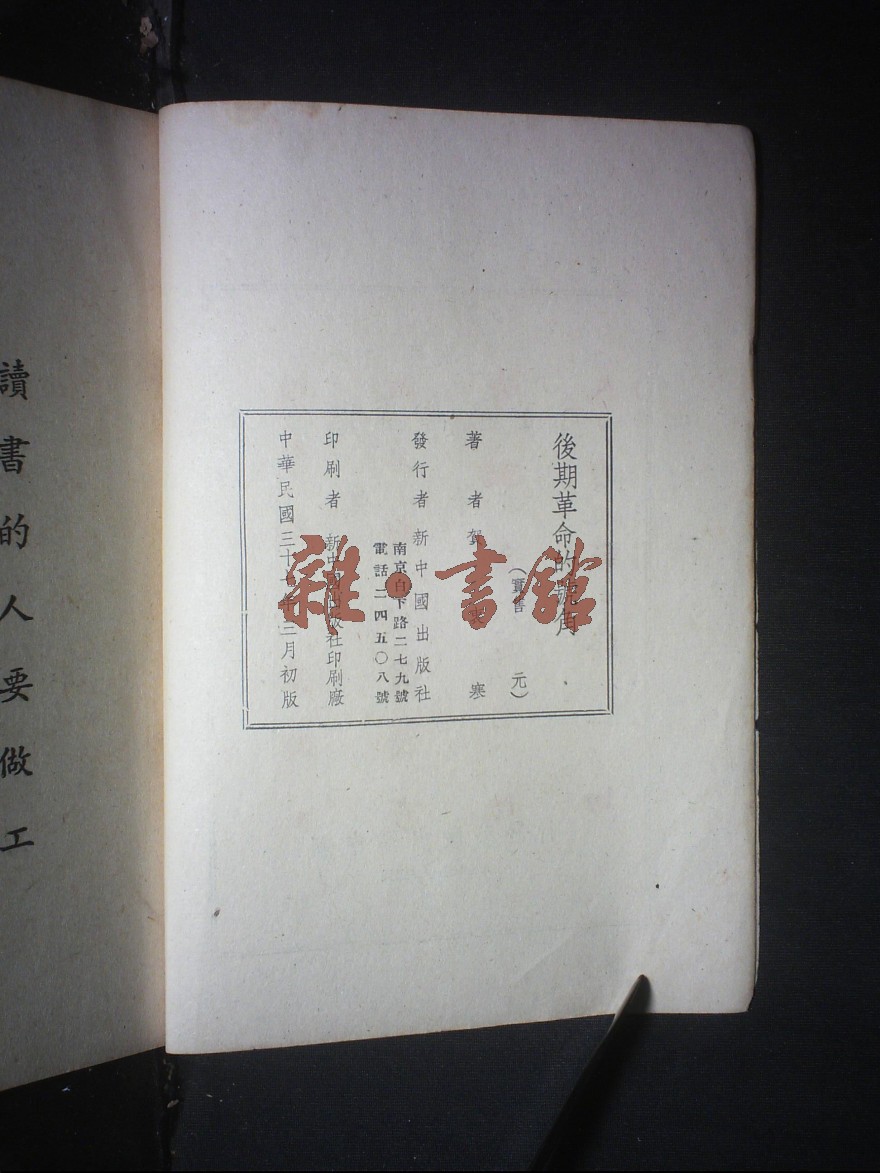 後期革命的號角
（實售 元）
著 者 賀 寒
發行者 新中國出版社
南京白下路二七九號
電話二四五〇八號
印刷者 新中國出版社印刷廠
中華民國三十 年三月初版
讀書的人要做工
雜·書館